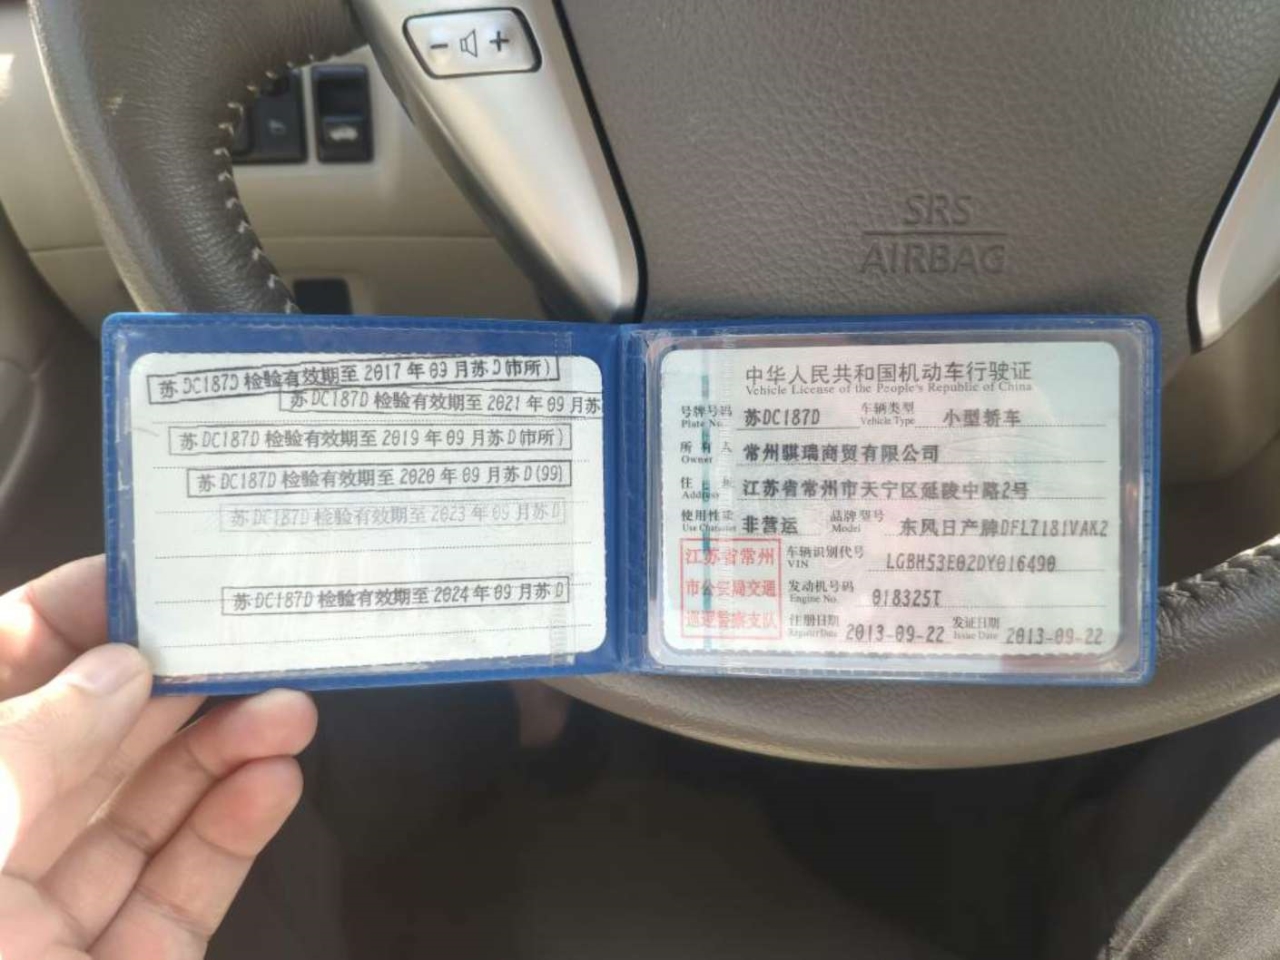 − +
SRS
AIRBAG
苏DC187D检验有效期至2017年09月苏D(市所)
苏DC187D检验有效期至2021年09月苏
苏DC187D检验有效期至2019年09月苏D(市所)
苏DC187D检验有效期至2020年09月苏D(99)
苏DC187D检验有效期至2023年09月苏D
苏DC187D检验有效期至2024年09月苏D
中华人民共和国机动车行驶证
Vehicle License of the People's Republic of China
号牌号码 Plate No. 苏DC187D 车辆类型 Vehicle Type 小型轿车
所有人 Owner 常州骐瑞商贸有限公司
住址 Address 江苏省常州市天宁区延陵中路2号
使用性质 Use Character 非营运 品牌型号 Model 东风日产牌DFL7181VAK2
车辆识别代号 VIN LGBH53E02DY016490
发动机号码 Engine No. 018325T
注册日期 Register Date 2013-09-22 发证日期 Issue Date 2013-09-22
江苏省常州
市公安局交通
巡逻警察支队